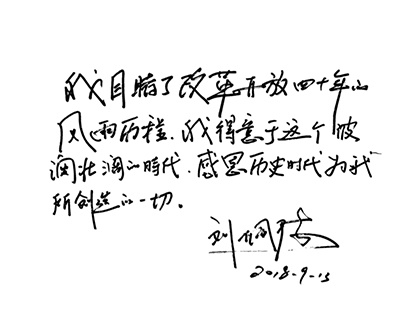 我目睹了改革开放四十年的
风雨历程.我得意于这个波
澜壮阔的時代.感恩历史时代为我
所创造的一切。
刘
2018-9-13